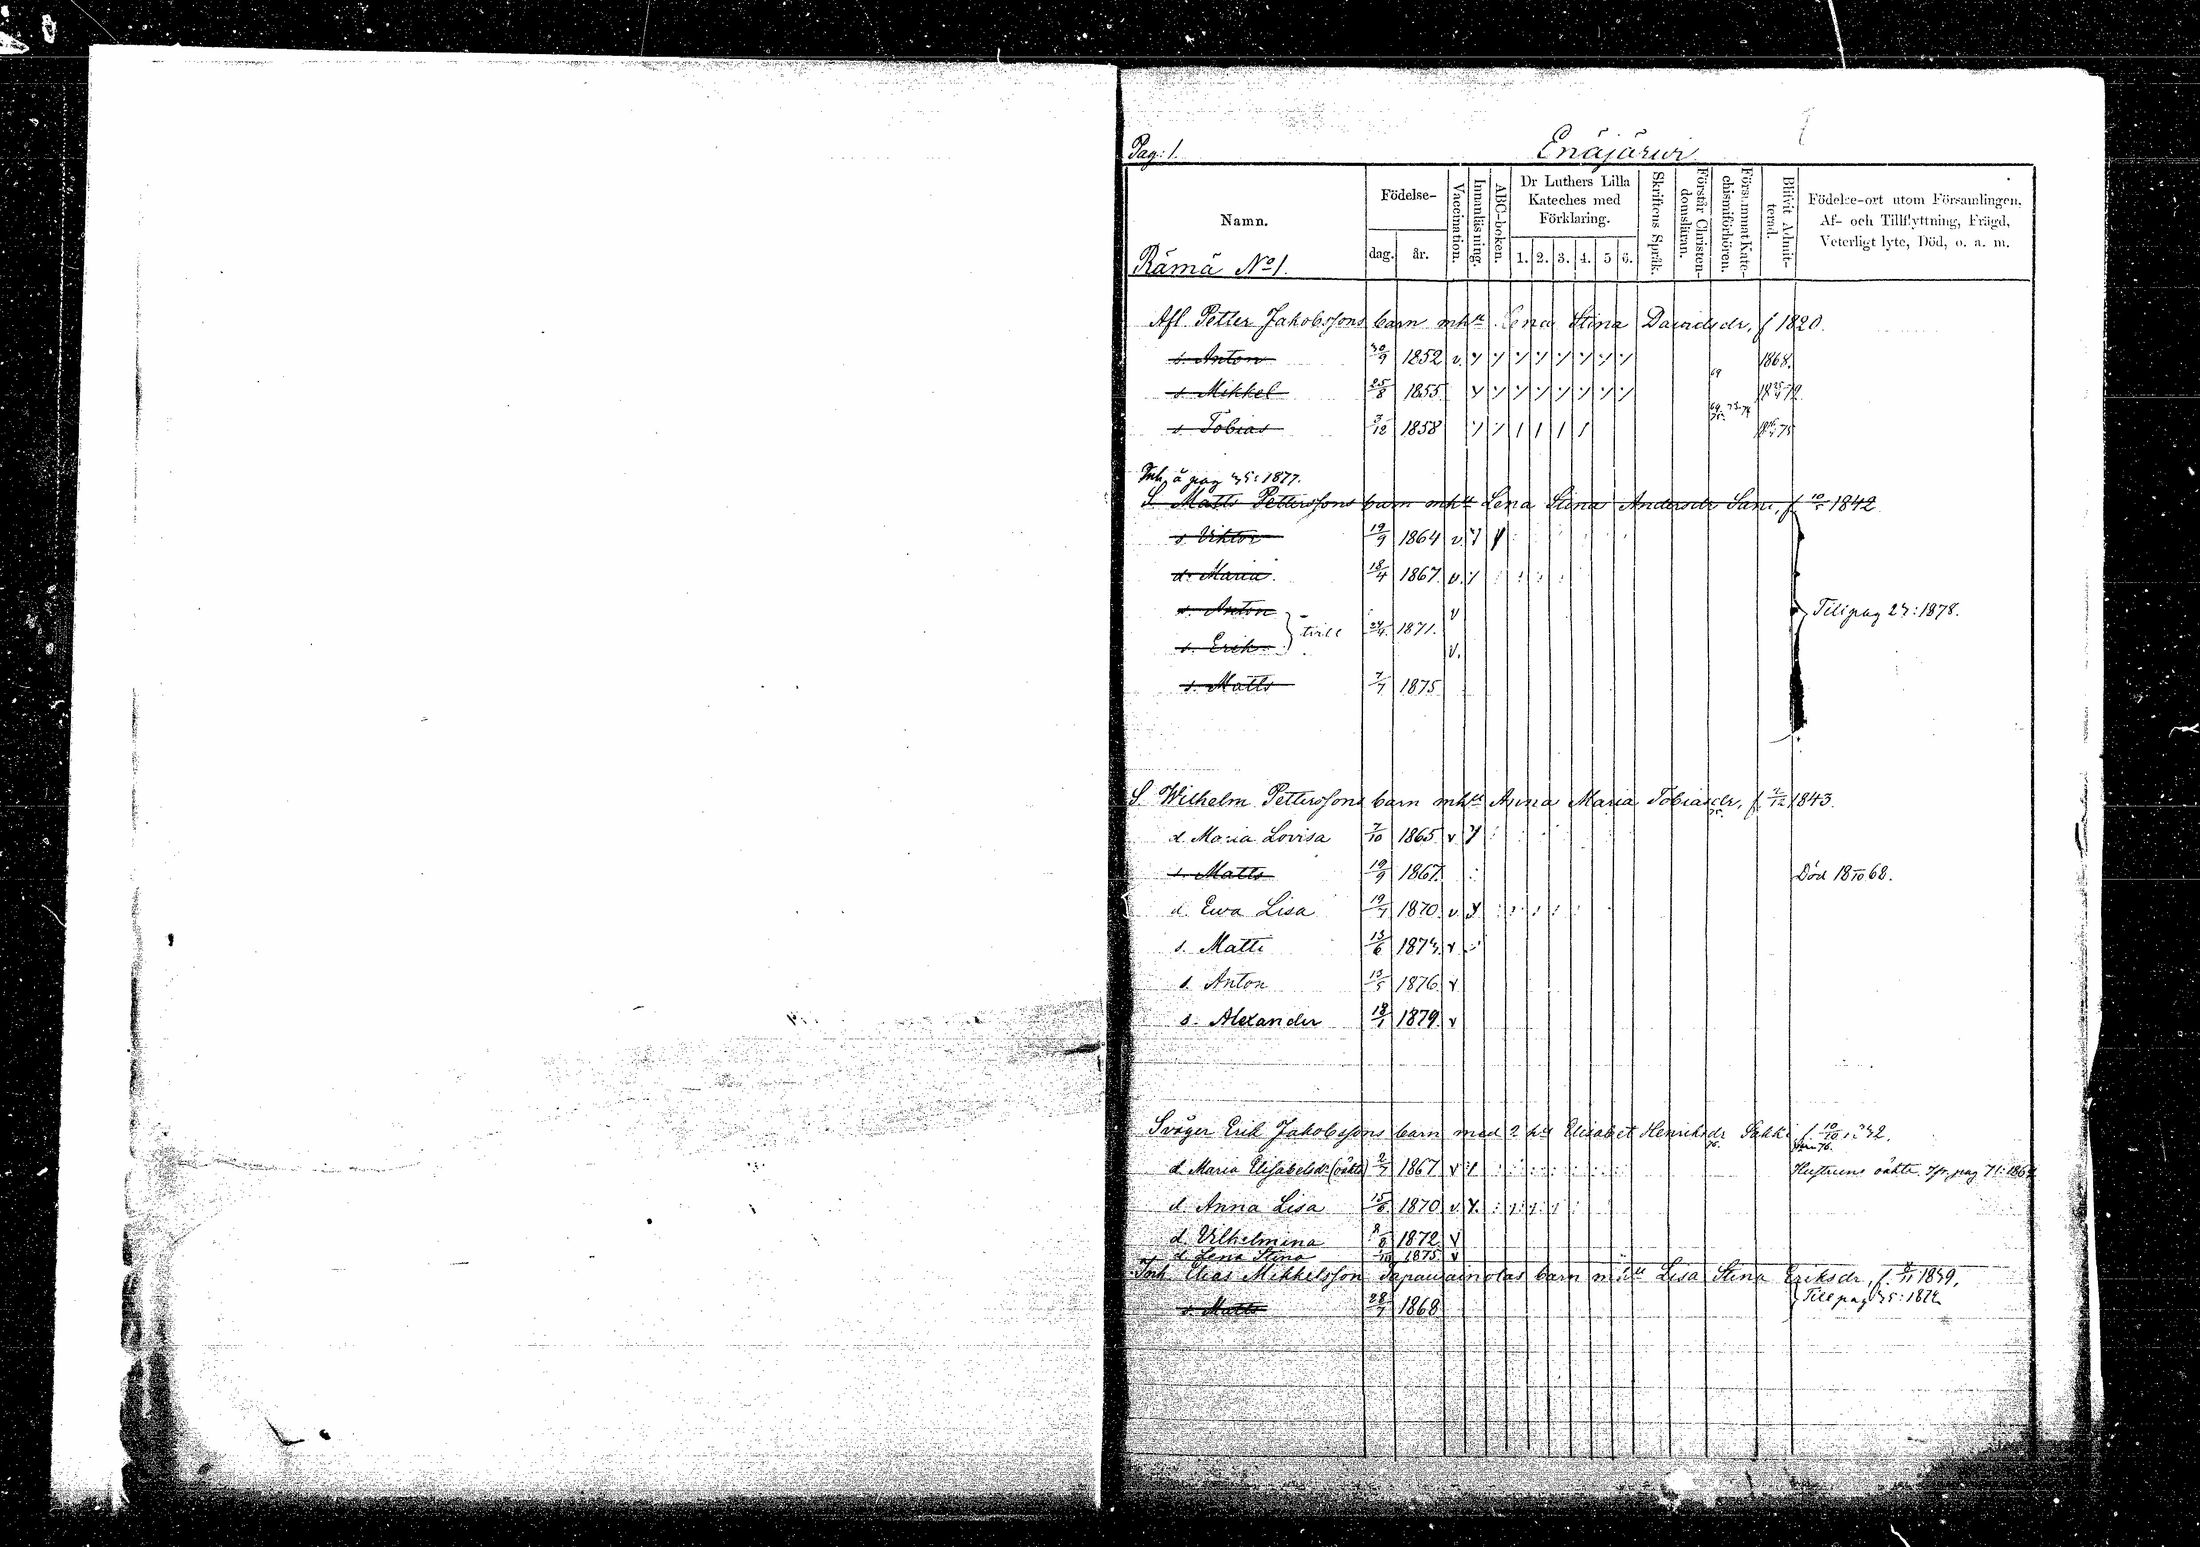 Pag: 1. Enäjärwi
Namn. Födelse- dag. år. Vaccination. Innanläsning. ABC-boken. Dr Luthers Lilla Kateches med Förklaring. 1. 2. 3. 4. 5 6. Skriftens Språk. Förstår Christendomsläran. Försummat Katechismiförhören. Blifvit Admitterad. Födelse-ort utom Församlingen, Af- och Tillflyttning, Frägd, Veterligt lyte, Död, o. a. m.
Rämä No 1.
Afl. Petter Jakobssons barn mhu Lena Stina Davidsdr, f 1820.
s. Anton 30/9 1852 v. 1868.
s. Mikkel 25/8 1855 69
s. Tobias 3/12 1858
Inh. å pag 35: 1877.
S. Matts Petterssons barn mhu Lena Stina Andersdr Sani, f 10/5 1842
s. Viktor 19/9 1864 v.
d. Maria 18/4 1867 v.
s. Anton v Till pag 23: 1878.
tvill 24/4 1871.
s. Erik v.
s. Matts 7/7 1875
S. Wilhelm Petterssons barn mhu Anna Maria Tobiasdr, f 2/12 1843.
d. Maria Lovisa 7/10 1865 v
s. Matts 19/9 1867 Död 18 /10 68.
d. Ewa Lisa 19/7 1870 v.
s. Matti 13/6 1873 v
s. Anton 13/5 1876 v
s. Alexander 18/1 1879 v
Svåger Erik Jakobssons barn med 2 hu Elisabet Henriksdr Sakki f 10/10
d. Maria Elisabetsdr (oäkta) 2/7 1867 v Hustruns oäkta, pag 71: 1867
d. Anna Lisa 15/6 1870 v.
d. Vilhelmina 8/8 1872 v
d. Lena Stina 1875 v
Inh. Elias Mikkelsson barn mhu Lisa Stina Eriksdr, f. 1839.
s. Matts 28/7 1868 Till pag 35: 1872